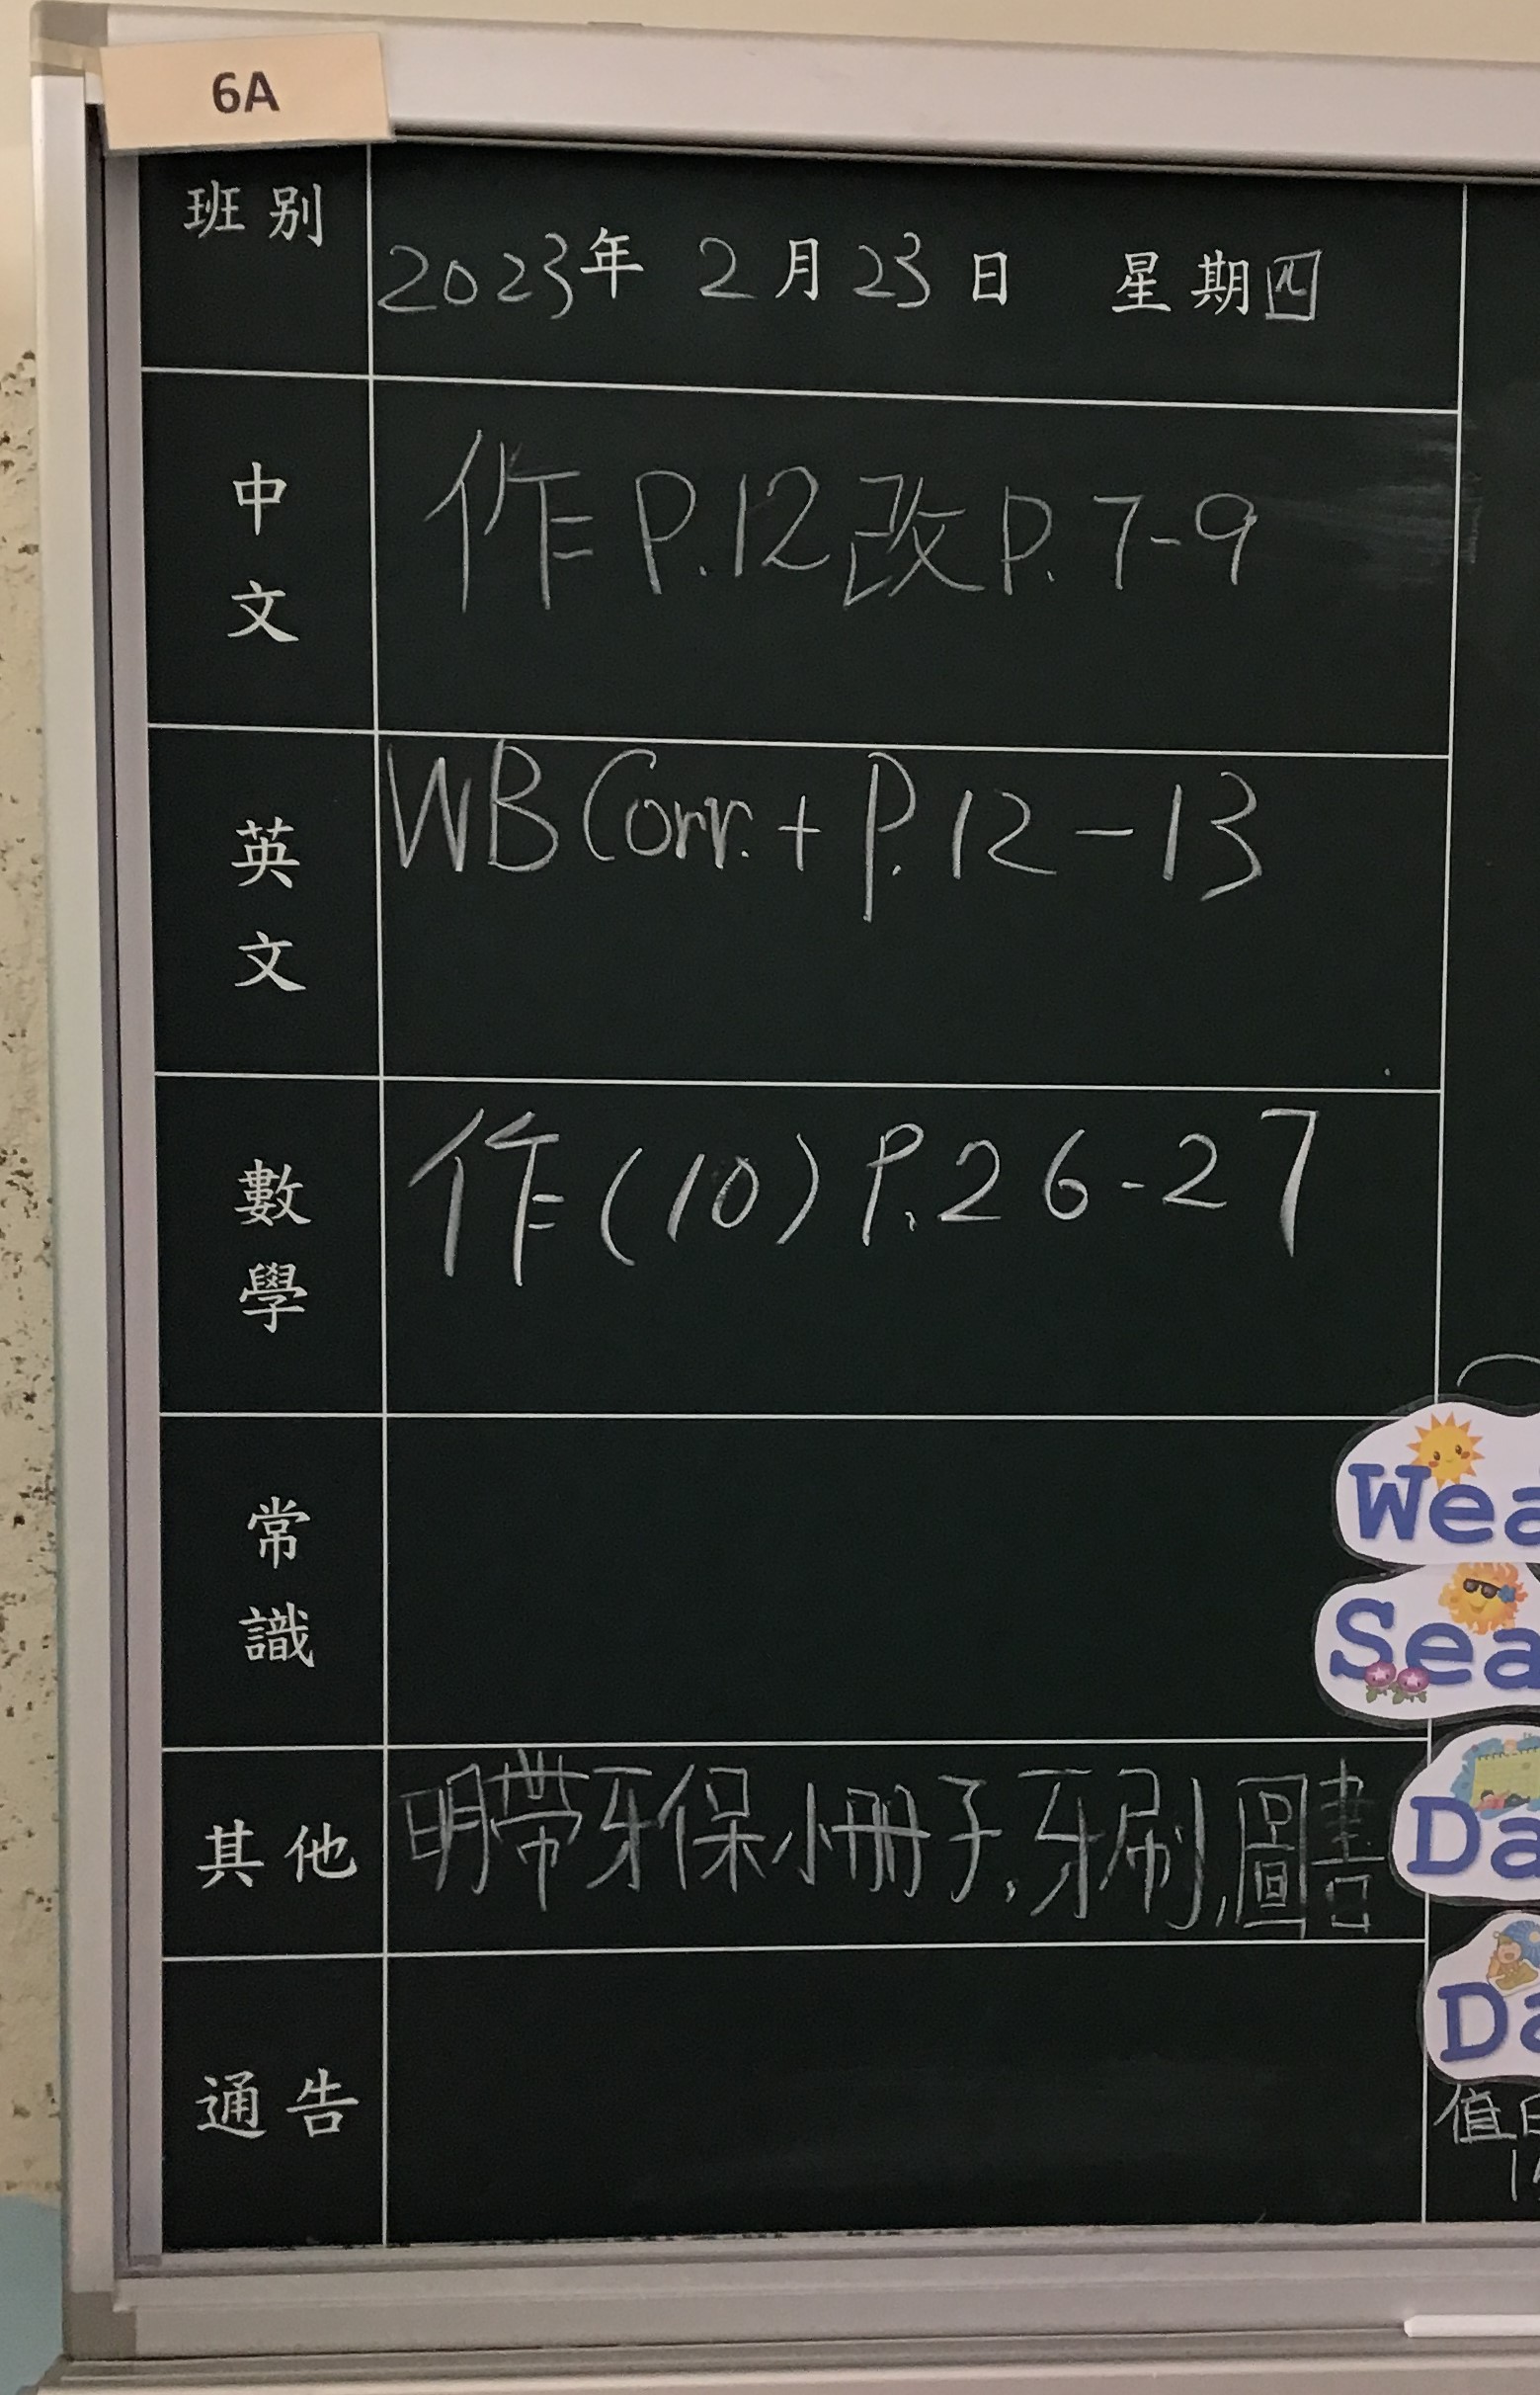 6A
班別
2023年 2月23日 星期四
中文
作P.12改P.7-9
英文
WB Corr. + P.12-13
數學
作(10)P.26-27
常識
其他
明帶牙保小冊子,牙刷,圖書
通告
Wea
Sea
Da
Da
值日